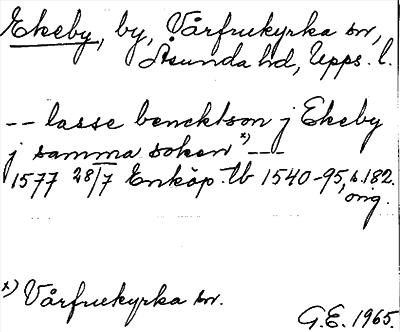 Ekeby, by, Vårfrukyrka sn,
Åsunda hd, Upps. l.
-- lasse bencktson j Ekeby
j samma soken x) ---
1577 28/7 Enköp. tb 1540-95, s. 182.
orig.
x) Vårfrukyrka sn.
G.E. 1965.